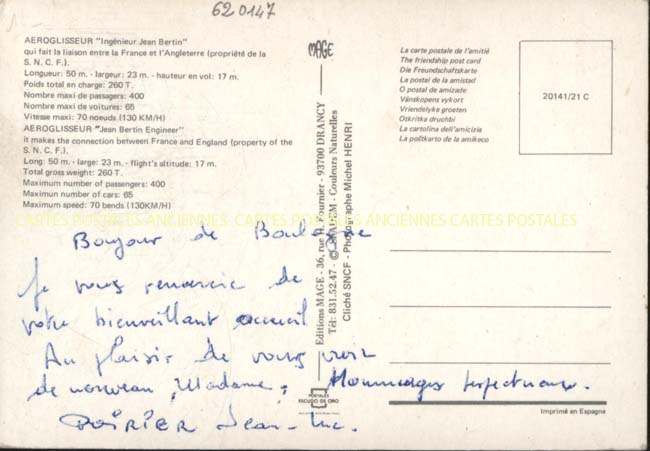 620147
AEROGLISSEUR "Ingénieur Jean Bertin"
qui fait la liaison entre la France et l'Angleterre (propriété de la
S. N. C. F.).
Longueur: 50 m. - largeur: 23 m. - hauteur en vol: 17 m.
Poids total en charge: 260 T.
Nombre maxi de passagers: 400
Nombre maxi de voitures: 65
Vitesse maxi: 70 noeuds (130 KM/H)
AEROGLISSEUR "Jean Bertin Engineer"
it makes the connection between France and England (property of the
S. N. C. F.).
Long: 50 m. - large: 23 m. - flight's altitude: 17 m.
Total gross weight: 260 T.
Maximum number of passengers: 400
Maximun number of cars: 65
Maximum speed: 70 bends (130KM/H)
MAGE
Editions MAGE - 36, rue H. Fournier - 93700 DRANCY
Tél: 831.52.47 - © - Couleurs Naturelles
Cliché SNCF - Photographe Michel HENRI
La carte postale de l'amitié
The friendship post card
Die Freundschaftskarte
La postal de la amistad
O postal de amizade
Vänskopens vykort
Vriendelyke groeten
Otkritka druchbi
La cartolina dell'amicizia
La poŝtkarto de la amikeco
20141/21 C
CARTES POSTALES ANCIENNES CARTES POSTALES ANCIENNES CARTES POSTALES
Bonjour de Boulogne
Je vous remercie de
votre bienveillant accueil
Au plaisir de vous voir
de nouveau, Madame, Hommages
POIRIER Jean-Luc.
POSTALES
ESCUDO DE ORO
Imprimé en Espagne